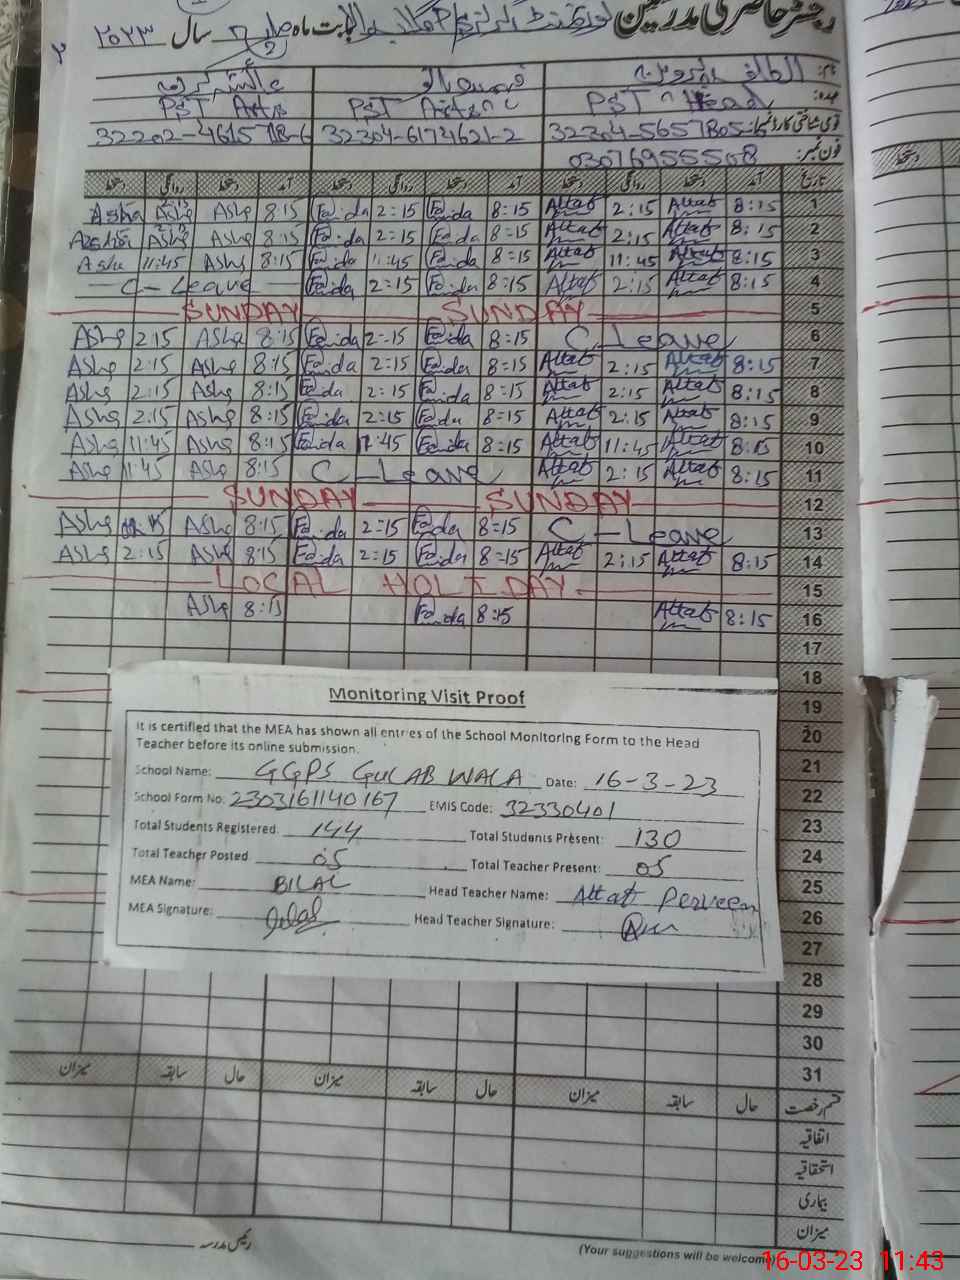 رجسٹر حاضری مدرسین گورنمنٹ گرلز بابت ماہ مارچ سال ۲۰۲۳ ۲
نام:
عہدہ: PST Head PST Arts PST Arts
قومی شناختی کارڈ نمبر: 32304-5657805- 32304-6174621-2 32202-4615718-6
فون نمبر: 03076955508
تاریخ آمد دستخط روانگی دستخط آمد دستخط روانگی دستخط آمد دستخط روانگی دستخط
1 8:15 Altaf 2:15 Altaf 8=15 Farida 2:15 Farida 8:15 Ashe Ashe Asha
2 8:15 Altaf 2:15 Altaf 8=15 Farida 2=15 Farida 8:15 Ashe Ashe
3 8:15 Altaf 11:45 Altaf 8=15 Farida 11:45 Farida 8:15 Ashe 11:45 Ashe
4 8:15 Altaf 2:15 Altaf 8=15 Farida 2=15 Farida C-Leave
5 SUNDAY SUNDAY
6 C Leave 8=15 Farida 2=15 Farida 8:15 Ashe 2:15 Ashe
7 8:15 Altaf 2:15 Altaf 8=15 Farida 2=15 Farida 8:15 Ashe 2:15 Ashe
8 8:15 Altaf 2:15 Altaf 8=15 Farida 2=15 Farida 8:15 Ashe 2:15 Ashe
9 8:15 Altaf 2:15 Altaf 8=15 Farida 2=15 Farida 8:15 Ashe 2:15 Ashe
10 8:15 Altaf 11:45 Altaf 8=15 Farida 11:45 Farida 8:15 Ashe 11:45 Ashe
11 8:15 Altaf 2:15 Altaf C-Leave 8:15 Ashe 11:45 Ashe
12 SUNDAY SUNDAY
13 C-Leave 8=15 Farida 2=15 Farida 8:15 Ashe Ashe
14 8:15 Altaf 2:15 Altaf 8=15 Farida 2=15 Farida 8:15 Ashe 2:15 Ashe
15 LOCAL HOLIDAY
16 8:15 Altaf 8:15 Farida 8:15 Ashe
17
18
19
20
21
22
23
24
25
26
27
28
29
30
31
Monitoring Visit Proof
It is certified that the MEA has shown all entries of the School Monitoring Form to the Head
Teacher before its online submission.
School Name: GGPS GULAB WALA Date: 16-3-23
School Form No: 2303161140167 EMIS Code: 32330401
Total Students Registered: 144 Total Students Present: 130
Total Teacher Posted 05 Total Teacher Present: 05
MEA Name: BILAL Head Teacher Name: Altaf Perveen
MEA Signature: Head Teacher Signature:
قسم رخصت حال سابقہ میزان حال سابقہ میزان حال سابقہ میزان
اتفاقیہ
استحقاقیہ
بیماری
میزان
رئیس مدرسہ
(Your suggestions will be welcome)
16-03-23 11:43